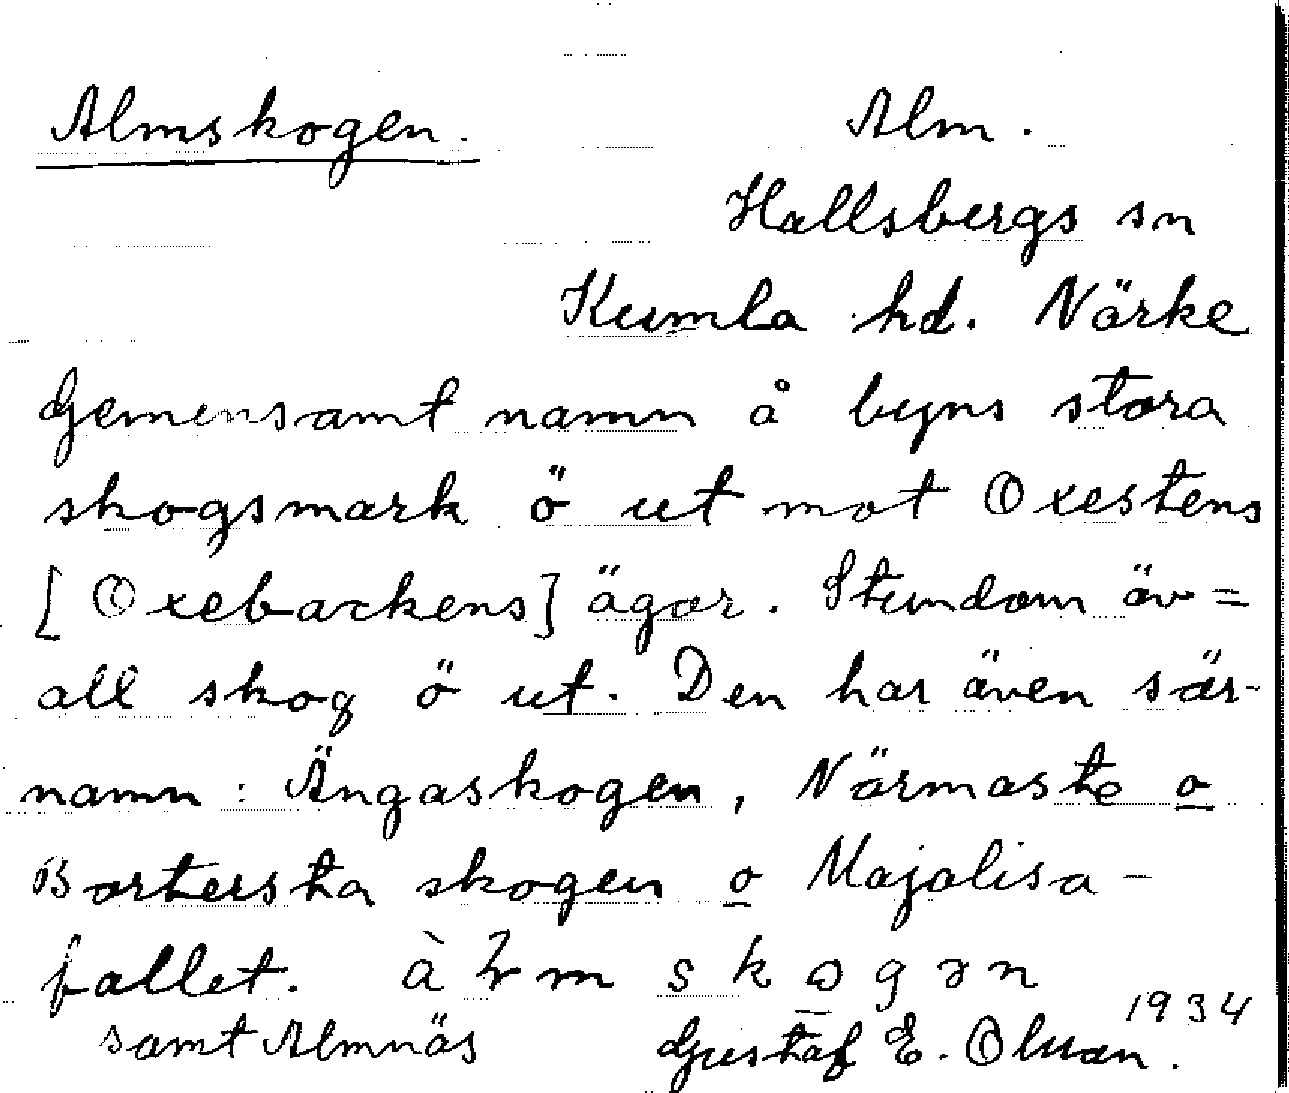 Almskogen. Alm.
Hallsbergs sn
Kumla hd. Närke
Gemensamt namn å byns stora
skogsmark ö ut mot Oxestens
[Oxebackens] ägor. Stundom äv=
all skog ö ut. Den har även sär-
namn: Ängaskogen, Närmaste o
Bortersta skogen o Majalisa-
fallet. skogen
samt Almnäs Gustaf E. Olman. 1934